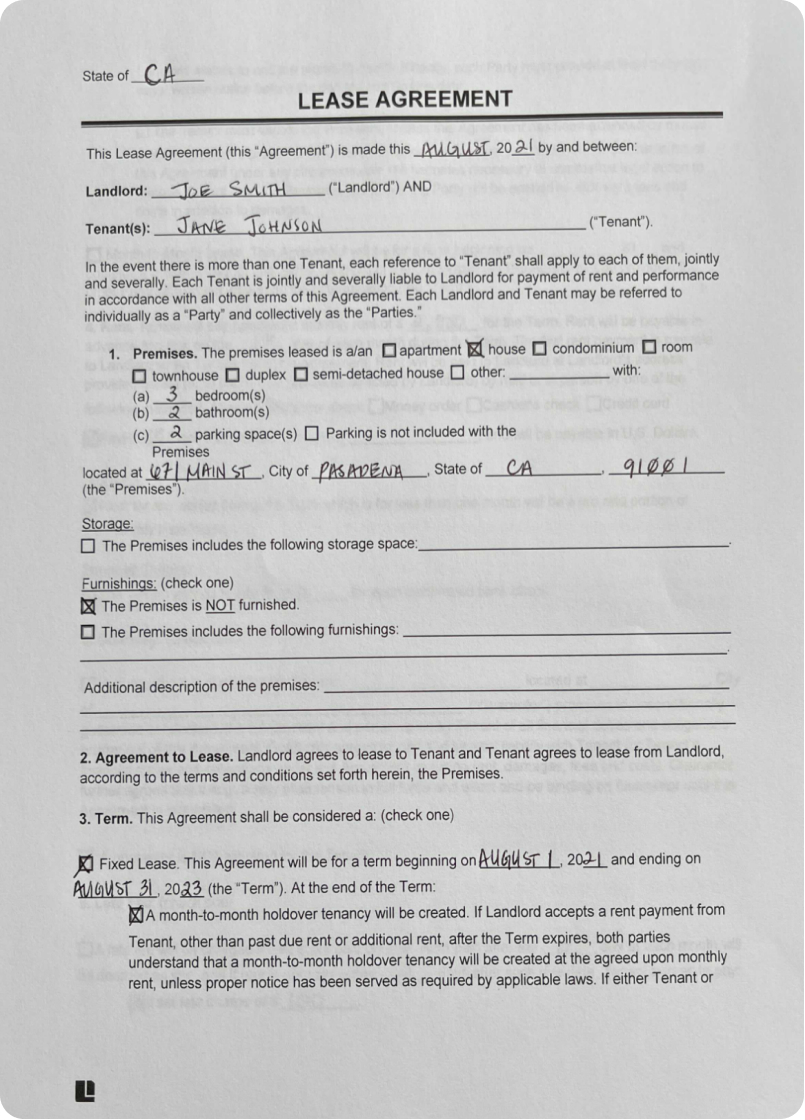 State of CA
LEASE AGREEMENT
This Lease Agreement (this “Agreement”) is made this AUGUST, 2021 by and between:
Landlord: JOE SMITH (“Landlord”) AND
Tenant(s): JANE JOHNSON (“Tenant”).
In the event there is more than one Tenant, each reference to “Tenant” shall apply to each of them, jointly
and severally. Each Tenant is jointly and severally liable to Landlord for payment of rent and performance
in accordance with all other terms of this Agreement. Each Landlord and Tenant may be referred to
individually as a “Party” and collectively as the “Parties.”
1. Premises. The premises leased is a/an ☐ apartment ☒ house ☐ condominium ☐ room
☐ townhouse ☐ duplex ☐ semi-detached house ☐ other: ____________ with:
(a) 3 bedroom(s)
(b) 2 bathroom(s)
(c) 2 parking space(s) ☐ Parking is not included with the
Premises
located at 671 MAIN ST, City of PASADENA, State of CA, 91001
(the “Premises”).
Storage:
☐ The Premises includes the following storage space: ____________.
Furnishings: (check one)
☒ The Premises is NOT furnished.
☐ The Premises includes the following furnishings: ____________
____________.
Additional description of the premises: ____________
2. Agreement to Lease. Landlord agrees to lease to Tenant and Tenant agrees to lease from Landlord,
according to the terms and conditions set forth herein, the Premises.
3. Term. This Agreement shall be considered a: (check one)
☒ Fixed Lease. This Agreement will be for a term beginning on AUGUST 1, 2021 and ending on
AUGUST 31, 2023 (the “Term”). At the end of the Term:
☒ A month-to-month holdover tenancy will be created. If Landlord accepts a rent payment from
Tenant, other than past due rent or additional rent, after the Term expires, both parties
understand that a month-to-month holdover tenancy will be created at the agreed upon monthly
rent, unless proper notice has been served as required by applicable laws. If either Tenant or